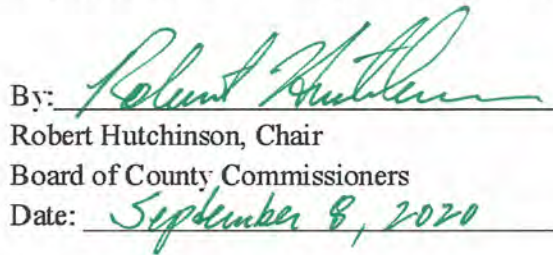 By: Robert Hutchinson
Robert Hutchinson, Chair
Board of County Commissioners
Date: September 8, 2020